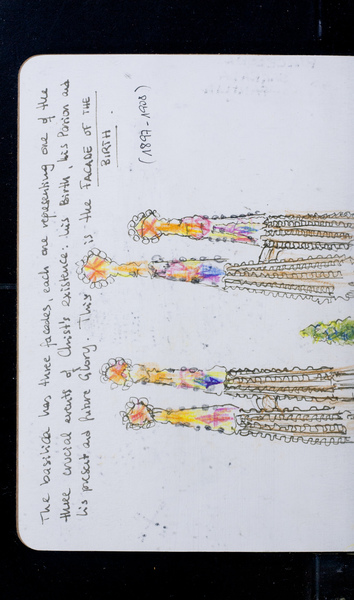 The basilica has three facades, each one representing one of the
three crucial events of Christ's existence: his Birth, his Passion and
his present and future Glory. This is the FACADE OF THE
BIRTH.
(1897-1908)